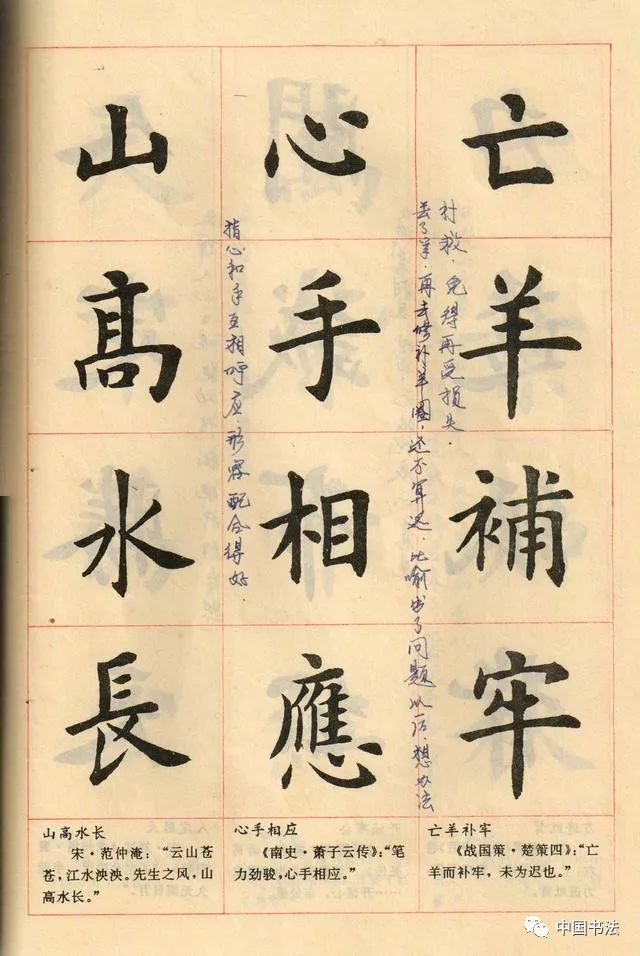 亡羊補牢
丢了羊，再去修补羊圈，还不算迟．比喻出了问题以后，想办法
补救，免得再受损失．
心手相應
指心和手互相呼应．形容配合得好．
山髙水長
亡羊补牢
《战国策·楚策四》：“亡
羊而补牢，未为迟也。”
心手相应
《南史·萧子云传》：“笔
力劲骏，心手相应。”
山高水长
宋·范仲淹：“云山苍
苍，江水泱泱。先生之风，山
高水长。”
中国书法